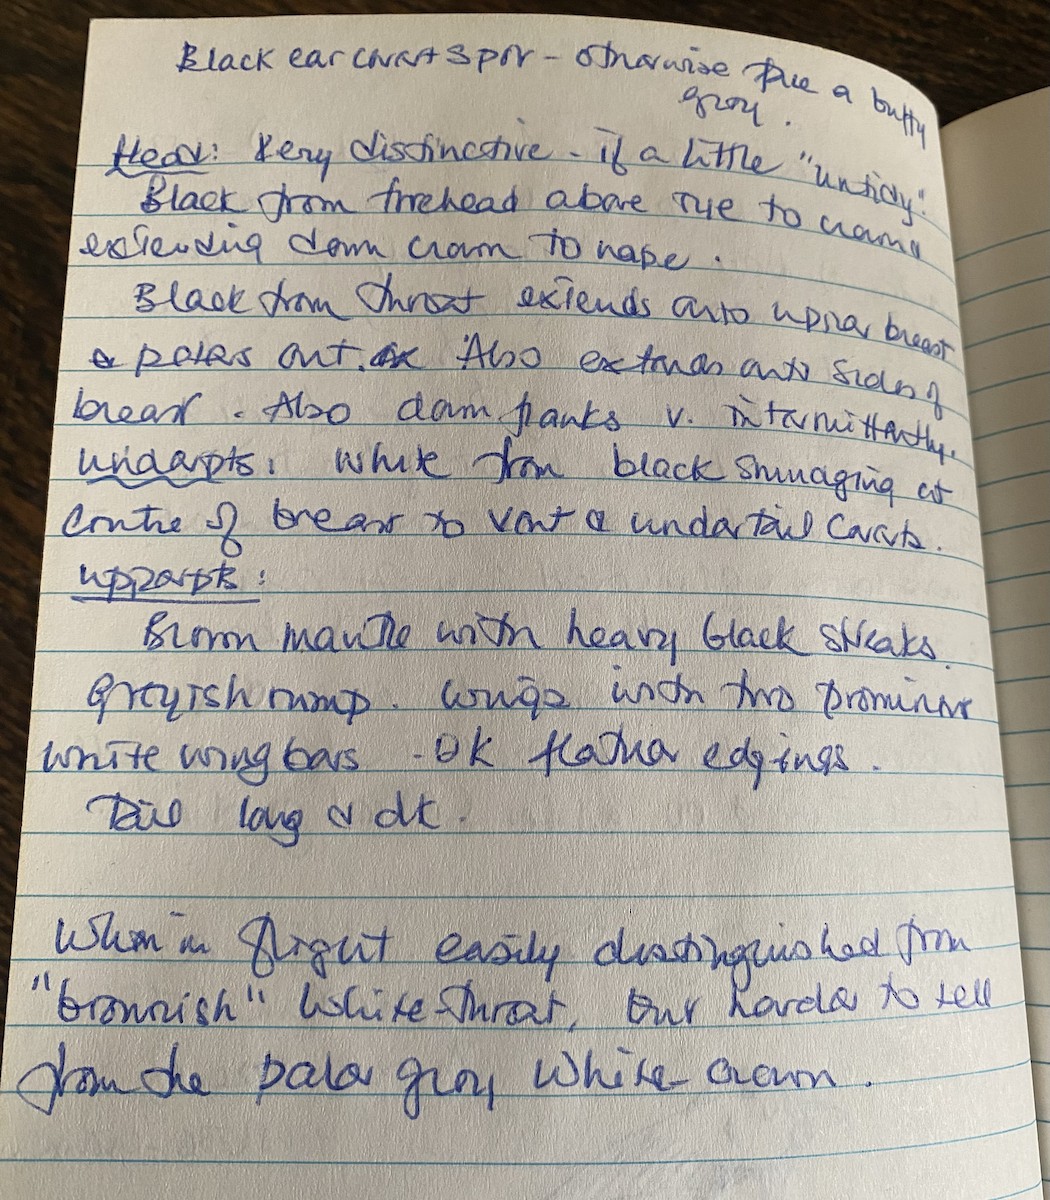 Black ear covert spot - otherwise face a buffy
grey.
Head: Very distinctive - if a little "untidy".
Black from forehead above eye to crown
extending down crown to nape.
Black from throat extends onto upper breast
& peters out. Also extends onto sides of
breast. Also down flanks v. intermittently.
Underpts: White from black smudging at
centre of breast to vent & undertail coverts.
Upperpts:
Brown mantle with heavy black streaks.
Greyish rump. Wings with two prominent
white wing bars - DK feather edgings.
Tail long & dk.
When in flight easily distinguished from
"brownish" White-throat, but harder to tell
from the paler grey White-crown.